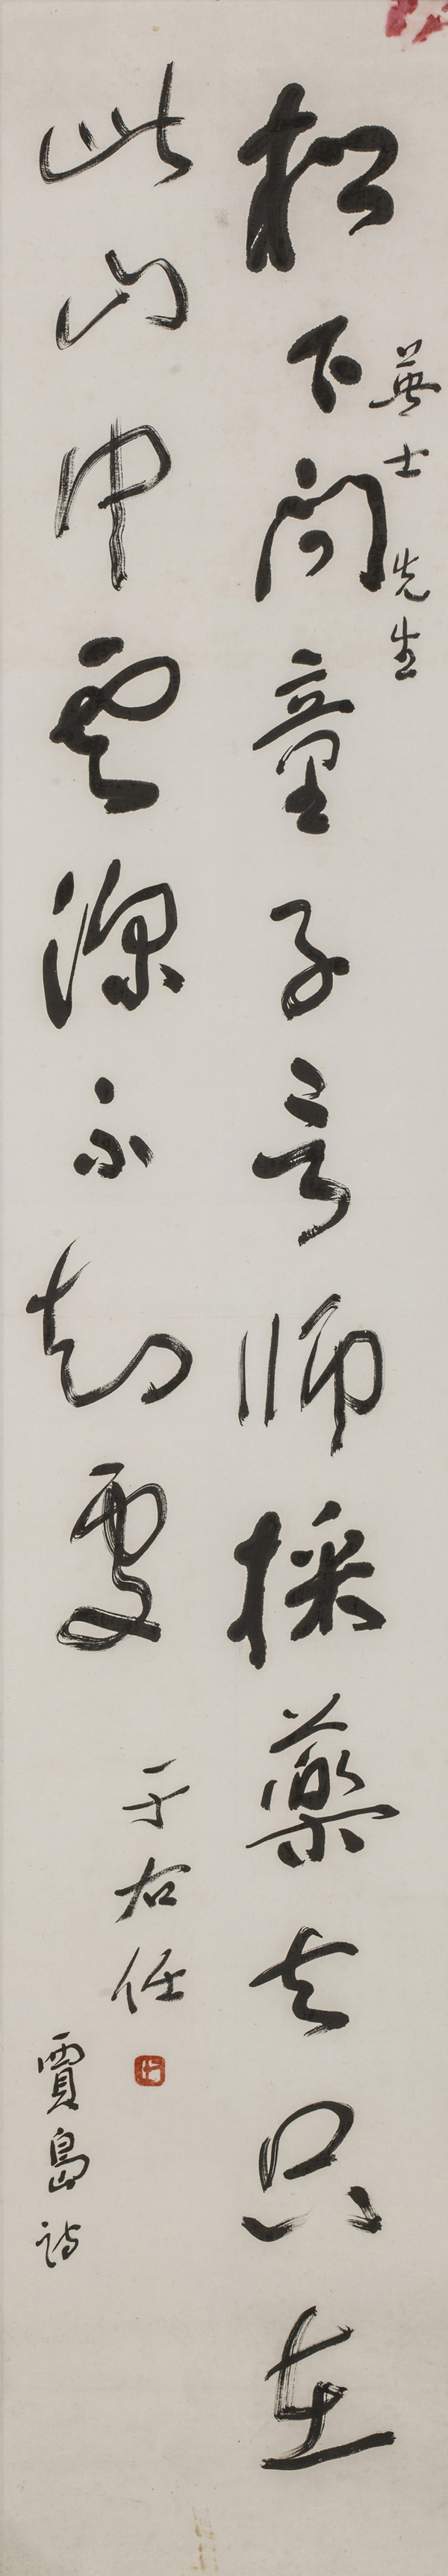 松下問童子言師採藥去只在
此山中雲深不知處
英士先生
于右任
賈島詩